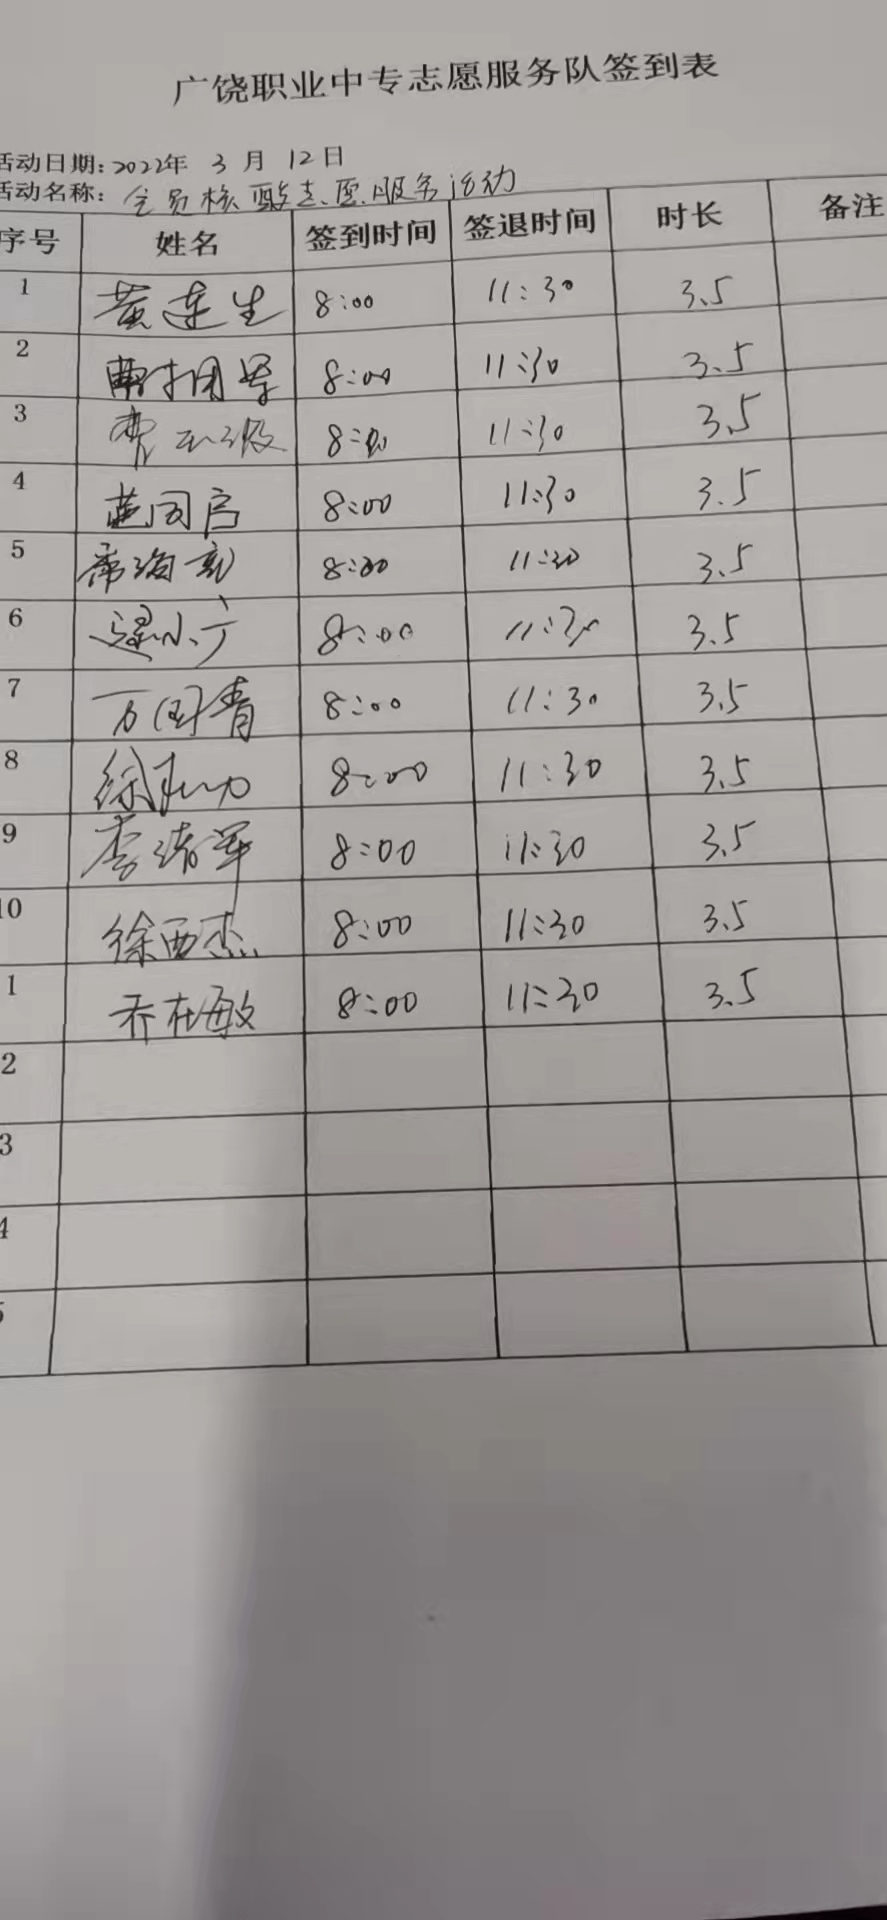 广饶职业中专志愿服务队签到表
活动日期:2022年 3 月 12日
活动名称: 全员核酸志愿服务活动
序号 姓名 签到时间 签退时间 时长 备注
1 黄连生 8:00 11:30 3.5
2 8:00 11:30 3.5
3 8:00 11:30 3.5
4 8:00 11:30 3.5
5 8:00 11:30 3.5
6 8:00 11:30 3.5
7 万国青 8:00 11:30 3.5
8 8:00 11:30 3.5
9 8:00 11:30 3.5
10 徐西杰 8:00 11:30 3.5
1 乔在敏 8:00 11:30 3.5
2
3
4
5